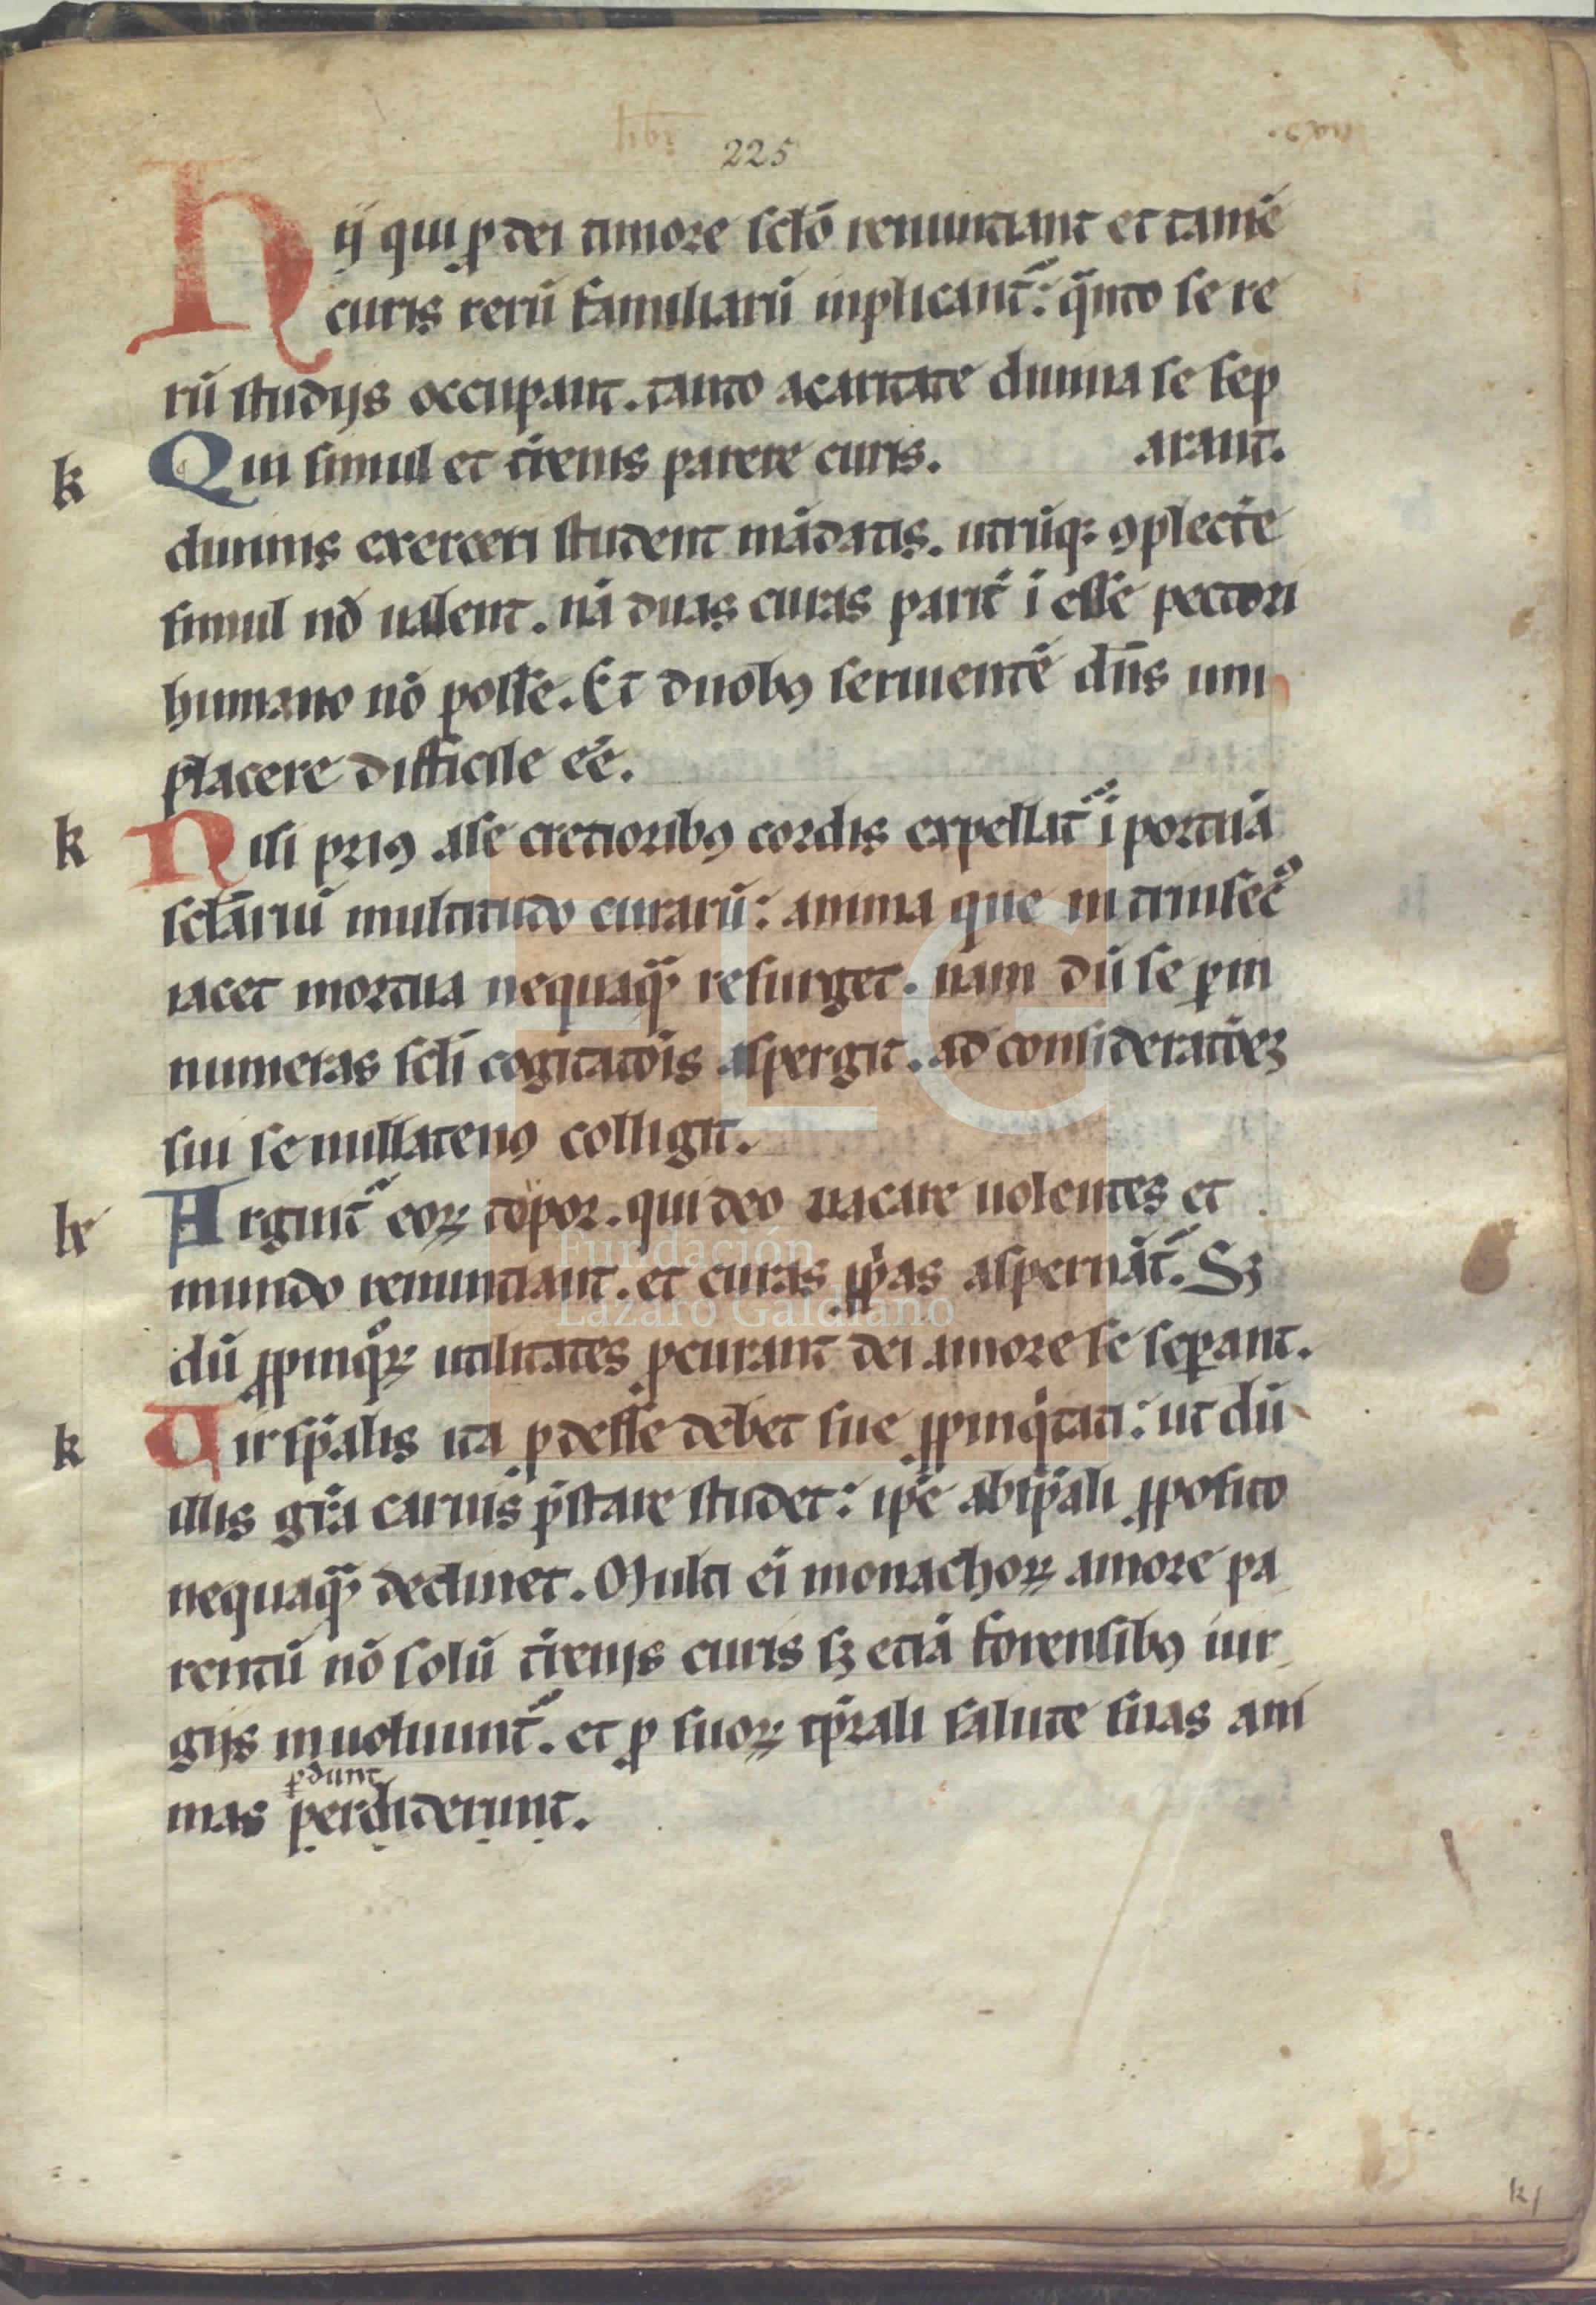 225
Hij qui ꝓ dei timore sclo᷒ renuntiant et tamē
curis rerū familiarū inplicant᷑: qᷓnto se re
rū studijs occupant. tanto a caritate diuina se sep
arant.
k Qui simul et t̄renis parere curis.
diuinis exerceri student mādatis. utrūq; ꝯplecte᷑
simul nō ualent. nā duas curas parit᷑ ī esse pectori
humano nō posse. Et duobꝰ seruientē dn̄is uni
placere difficile eē.
k Nisi priꝰ a secretioribꝰ cordis expellat᷑ īportuna
sclāriū multitudo curarū: anima que intrinsecꝰ
iacet mortua nequaqᷓ resurget. nam dū se ꝑ in
numeras scl̄i cogitatōis aspergit. ad consideratōeꝫ
sui se nullatenꝰ colligit.
k Argunt᷑ eoꝝ tēpor. qui deo uacare uolentes et
mundo renuntiant. et curas ꝓp̄as aspernāt᷑. Sꝫ
dū ꝓpinqͦꝝ utilitates ꝓcurant dei amore se seꝑant.
k Uir sp̄alis ita ꝓdesse debet sue ꝓpinqͥtati: ut dū
illis gr̄a carnis p̄stare studet: ip̄e a sp̄ali ꝓposito
nequaqᷓ declinet. Multi eī monachoꝝ amore pa
rentū nō solū t̄renis curis sꝫ etiā forensibꝰ iur
gijs inuoluunt᷑. et ꝓ suoꝝ tp̄rali salute suas ani
ꝑdunt
mas perdiderunt.
FLG
Fundación
Lázaro Galdiano